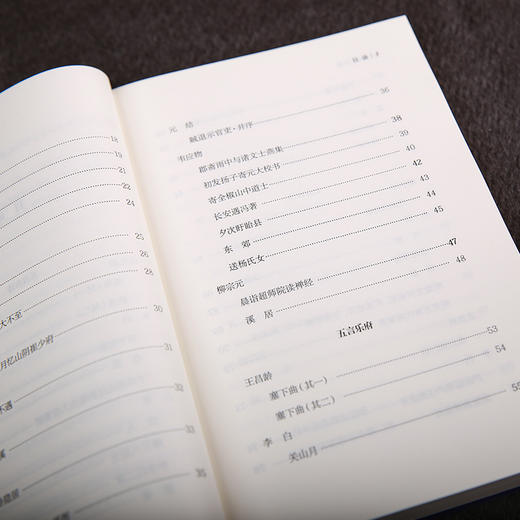 18
19
21
22
24
25
26
28
大不至 30
月忆山阴崔少府 31
不遇 32
33
35
目 录
元 结
贼退示官吏·并序 36
韦应物
郡斋雨中与诸文士燕集 38
初发扬子寄元大校书 39
寄全椒山中道士 40
长安遇冯著 42
夕次盱眙县 43
东 郊 44
送杨氏女 45
柳宗元
晨诣超师院读禅经 47
溪 居 48
五言乐府
王昌龄
塞下曲(其一) 53
塞下曲(其二) 54
李 白
关山月 55